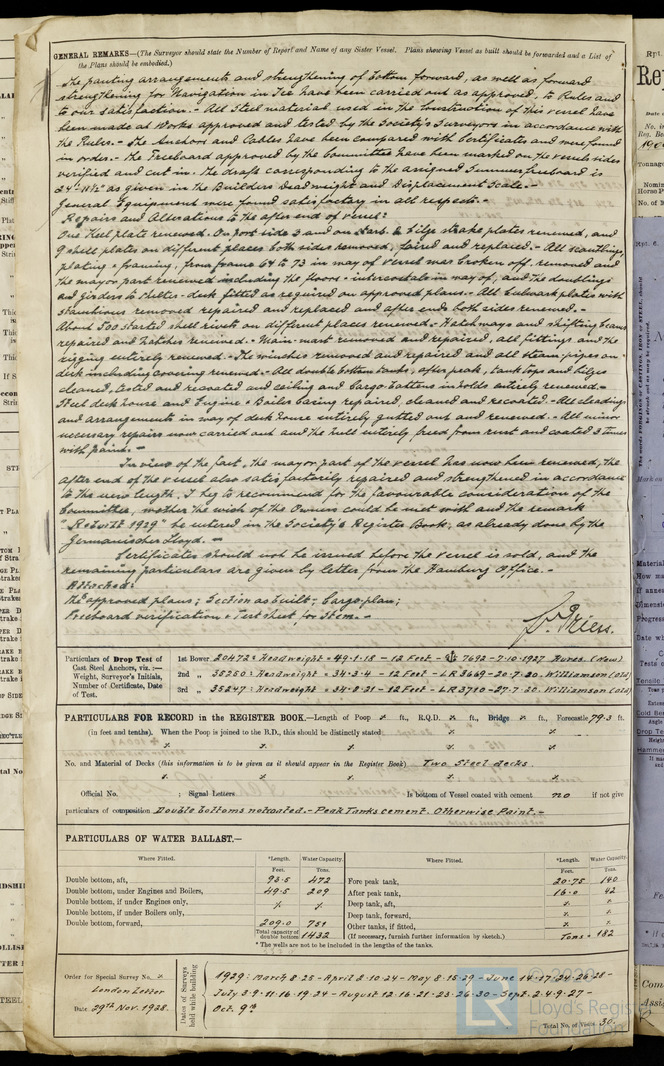 GENERAL REMARKS—(The Surveyor should state the Number of Report and Name of any Sister Vessel. Plans showing Vessel as built should be forwarded and a List of
the Plans should be embodied.)
The panting arrangements and strengthening of bottom forward, as well as forward
strengthening for Navigation in Ice have been carried out as approved, to Rules and
to our Satisfaction.- All Steel material used in the Construction of this vessel have
been made at Works approved and tested by the Society's Surveyors in accordance with
the Rules.- The Anchors and Cables have been compared with Certificates and were found
in order.- The Freeboard approved by the Committee have been marked on the vessels sides
verified and cut in. The draft corresponding to the assigned Summer freeboard is
24'-11½" as given in the Builders Deadweight and Displacement Scale.-
General Equipment were found satisfactory in all respects.-
Repairs and Alterations to the after end of vessel:
One Keel plate renewed. On port side 3 and on starb. 2 bilge strake plates renewed, and
9 shell plates on different places both sides removed, faired and replaced.- All scantlings,
plating & framing, from frame 64 to 73 in way of vessel was broken off, removed and
the mayor part renewed including the floors & intercostals in way of, and the doublings
and Girders to Rules.- deck fitted as required on approved plans.- All bulwark plates with
stanchions removed repaired and replaced and after ends both sides renewed.-
About 500 started shell rivets on different places renewed.- Hatchways and shifting beams
repaired and hatches renewed.- Main-mast removed and repaired, all fittings and the
rigging entirely renewed.- The winches removed and repaired and all steam pipes on
deck including covering renewed.- All double bottom tanks, after peak, tank tops and bilges
cleaned, tested and recoated and ceiling and Cargo battens in holds entirely renewed.-
Steel deck house and Engine & Boiler Casing repaired, cleaned and recoated.- All
and arrangements in way of deck house entirely gutted out and renewed.- All minor
necessary repairs now carried out and the hull entirely freed from rust and coated 3 times
with paint.-
In view of the fact, the mayor part of the vessel has now been renewed, the
after end of the vessel also satisfactorily repaired and strengthened in accordance
to the new length. I beg to recommend for the favourable consideration of the
Committee, wether the wish of the Owners could be met with and the remark
"Rebuilt 1929" be entered in the Society's Register Book, as already done by the
Germanischer Lloyd.-
Certificates should not be issued before the vessel is sold, and the
remaining particulars are given by letter from the Hamburg Office.-
Attached:
The approved plans; Section as built; Cargo plan;
Freeboard verification & Test sheet, for Stem.-
Particulars of Drop Test of
Cast Steel Anchors, viz.:—
Weight, Surveyor's Initials,
Number of Certificate, Date
of Test.
1st Bower 20472 = Headweight = 49-1-18 - 12 Feet - 7692 - 7.10.1927 (New)
2nd „ 35250 = Headweight = 34-3-4 - 12 Feet - LR 3669 - 20.7.20. Williamson (Old)
3rd „ 35247 = Headweight = 34-8-21 - 12 Feet - LR 3710 - 27.7.20. Williamson (Old)
PARTICULARS FOR RECORD in the REGISTER BOOK.—Length of Poop ✗ ft., R.Q.D. ✗ ft., Bridge ✗ ft., Forecastle 79.3 ft.
(in feet and tenths). When the Poop is joined to the B.D., this should be distinctly stated
No. and Material of Decks (this information is to be given as it should appear in the Register Book) Two Steel decks.
Official No. ; Signal Letters Is bottom of Vessel coated with cement no if not give
particulars of composition Double bottoms not coated.- Peak Tanks cement. Otherwise Paint.-
PARTICULARS OF WATER BALLAST.—
Where Fitted. *Length. Water Capacity. Where Fitted. *Length. Water Capacity.
Feet. Tons. Feet. Tons.
Double bottom, aft, 93.5 472 Fore peak tank, 20.75 140
Double bottom, under Engines and Boilers, 49.5 209 After peak tank, 16.0 42
Double bottom, if under Engines only, Deep tank, aft,
Double bottom, if under Boilers only, Deep tank, forward,
Double bottom, forward, 209.0 751 Other tanks, if fitted,
Total capacity of double bottom 1432 (If necessary, furnish further information by sketch.) Tons = 182
* The wells are not to be included in the lengths of the tanks.
Order for Special Survey No.
London Letter
Date 29th Nov. 1928.
Dates of Surveys held while building
1929: March 8-25 - April 2-10-24 - May 8-15-29 - June 14-17-24-26-28-
July 3-9-11-16-19-24 - August 12-16-21-23-26-30 - Sept. 2-4-9-27-
Oct. 9th
Total No. of Visits 30.
Lloyd's Register
Foundation